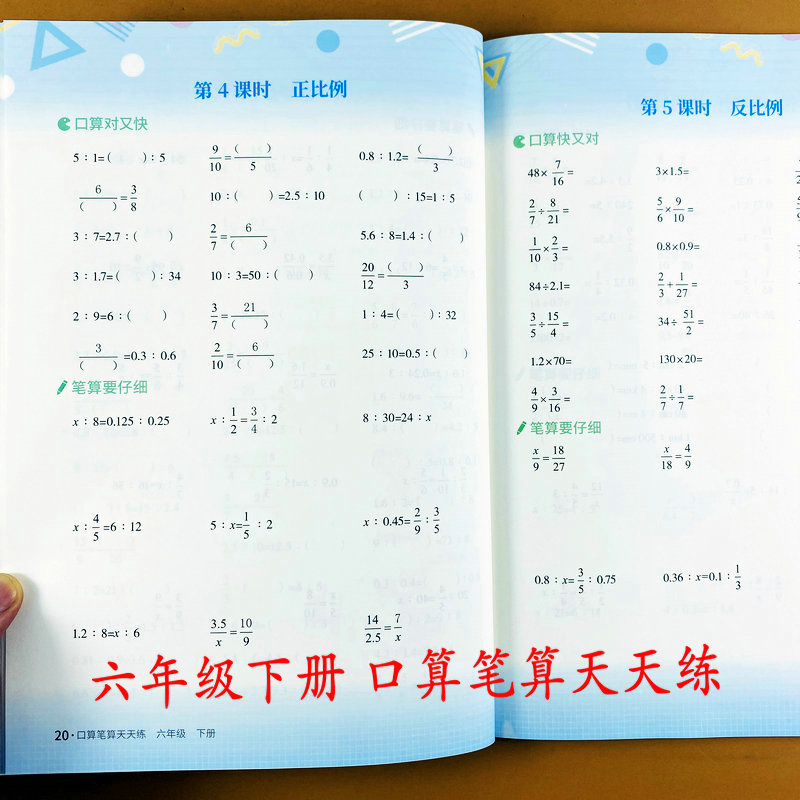 第4课时 正比例
口算对又快
5：1=（ ）：5 9/10=（ ）/5 0.8：1.2=（ ）/3
6/（ ）=3/8 10：（ ）=2.5：10 （ ）：15=1：5
3：7=2.7：（ ） 2/7=6/（ ） 5.6：8=1.4：（ ）
3：1.7=（ ）：34 10：3=50：（ ） 20/12=（ ）/3
2：9=6：（ ） 3/7=21/（ ） 1：4=（ ）：32
3/（ ）=0.3：0.6 2/10=6/（ ） 25：10=0.5：（ ）
笔算要仔细
x：8=0.125：0.25 x：1/2=3/4：2 8：30=24：x
x：4/5=6：12 5：x=1/5：2 x：0.45=2/9：3/5
1.2：8=x：6 3.5/x=10/9 14/2.5=7/x
六年级下册 口算笔算天天练
20·口算笔算天天练 六年级 下册
第5课时 反比例
口算快又对
48×7/16= 3×1.5=
2/7÷8/21= 5/6×9/10=
1/10×2/3= 0.8×0.9=
84÷2.1= 2/3+1/27=
3/5÷15/4= 34÷51/2=
1.2×70= 130×20=
4/9×3/16= 2/7÷1/7=
笔算要仔细
x/9=18/27 x/18=4/9
0.8：x=3/5：0.75 0.36：x=0.1：1/3